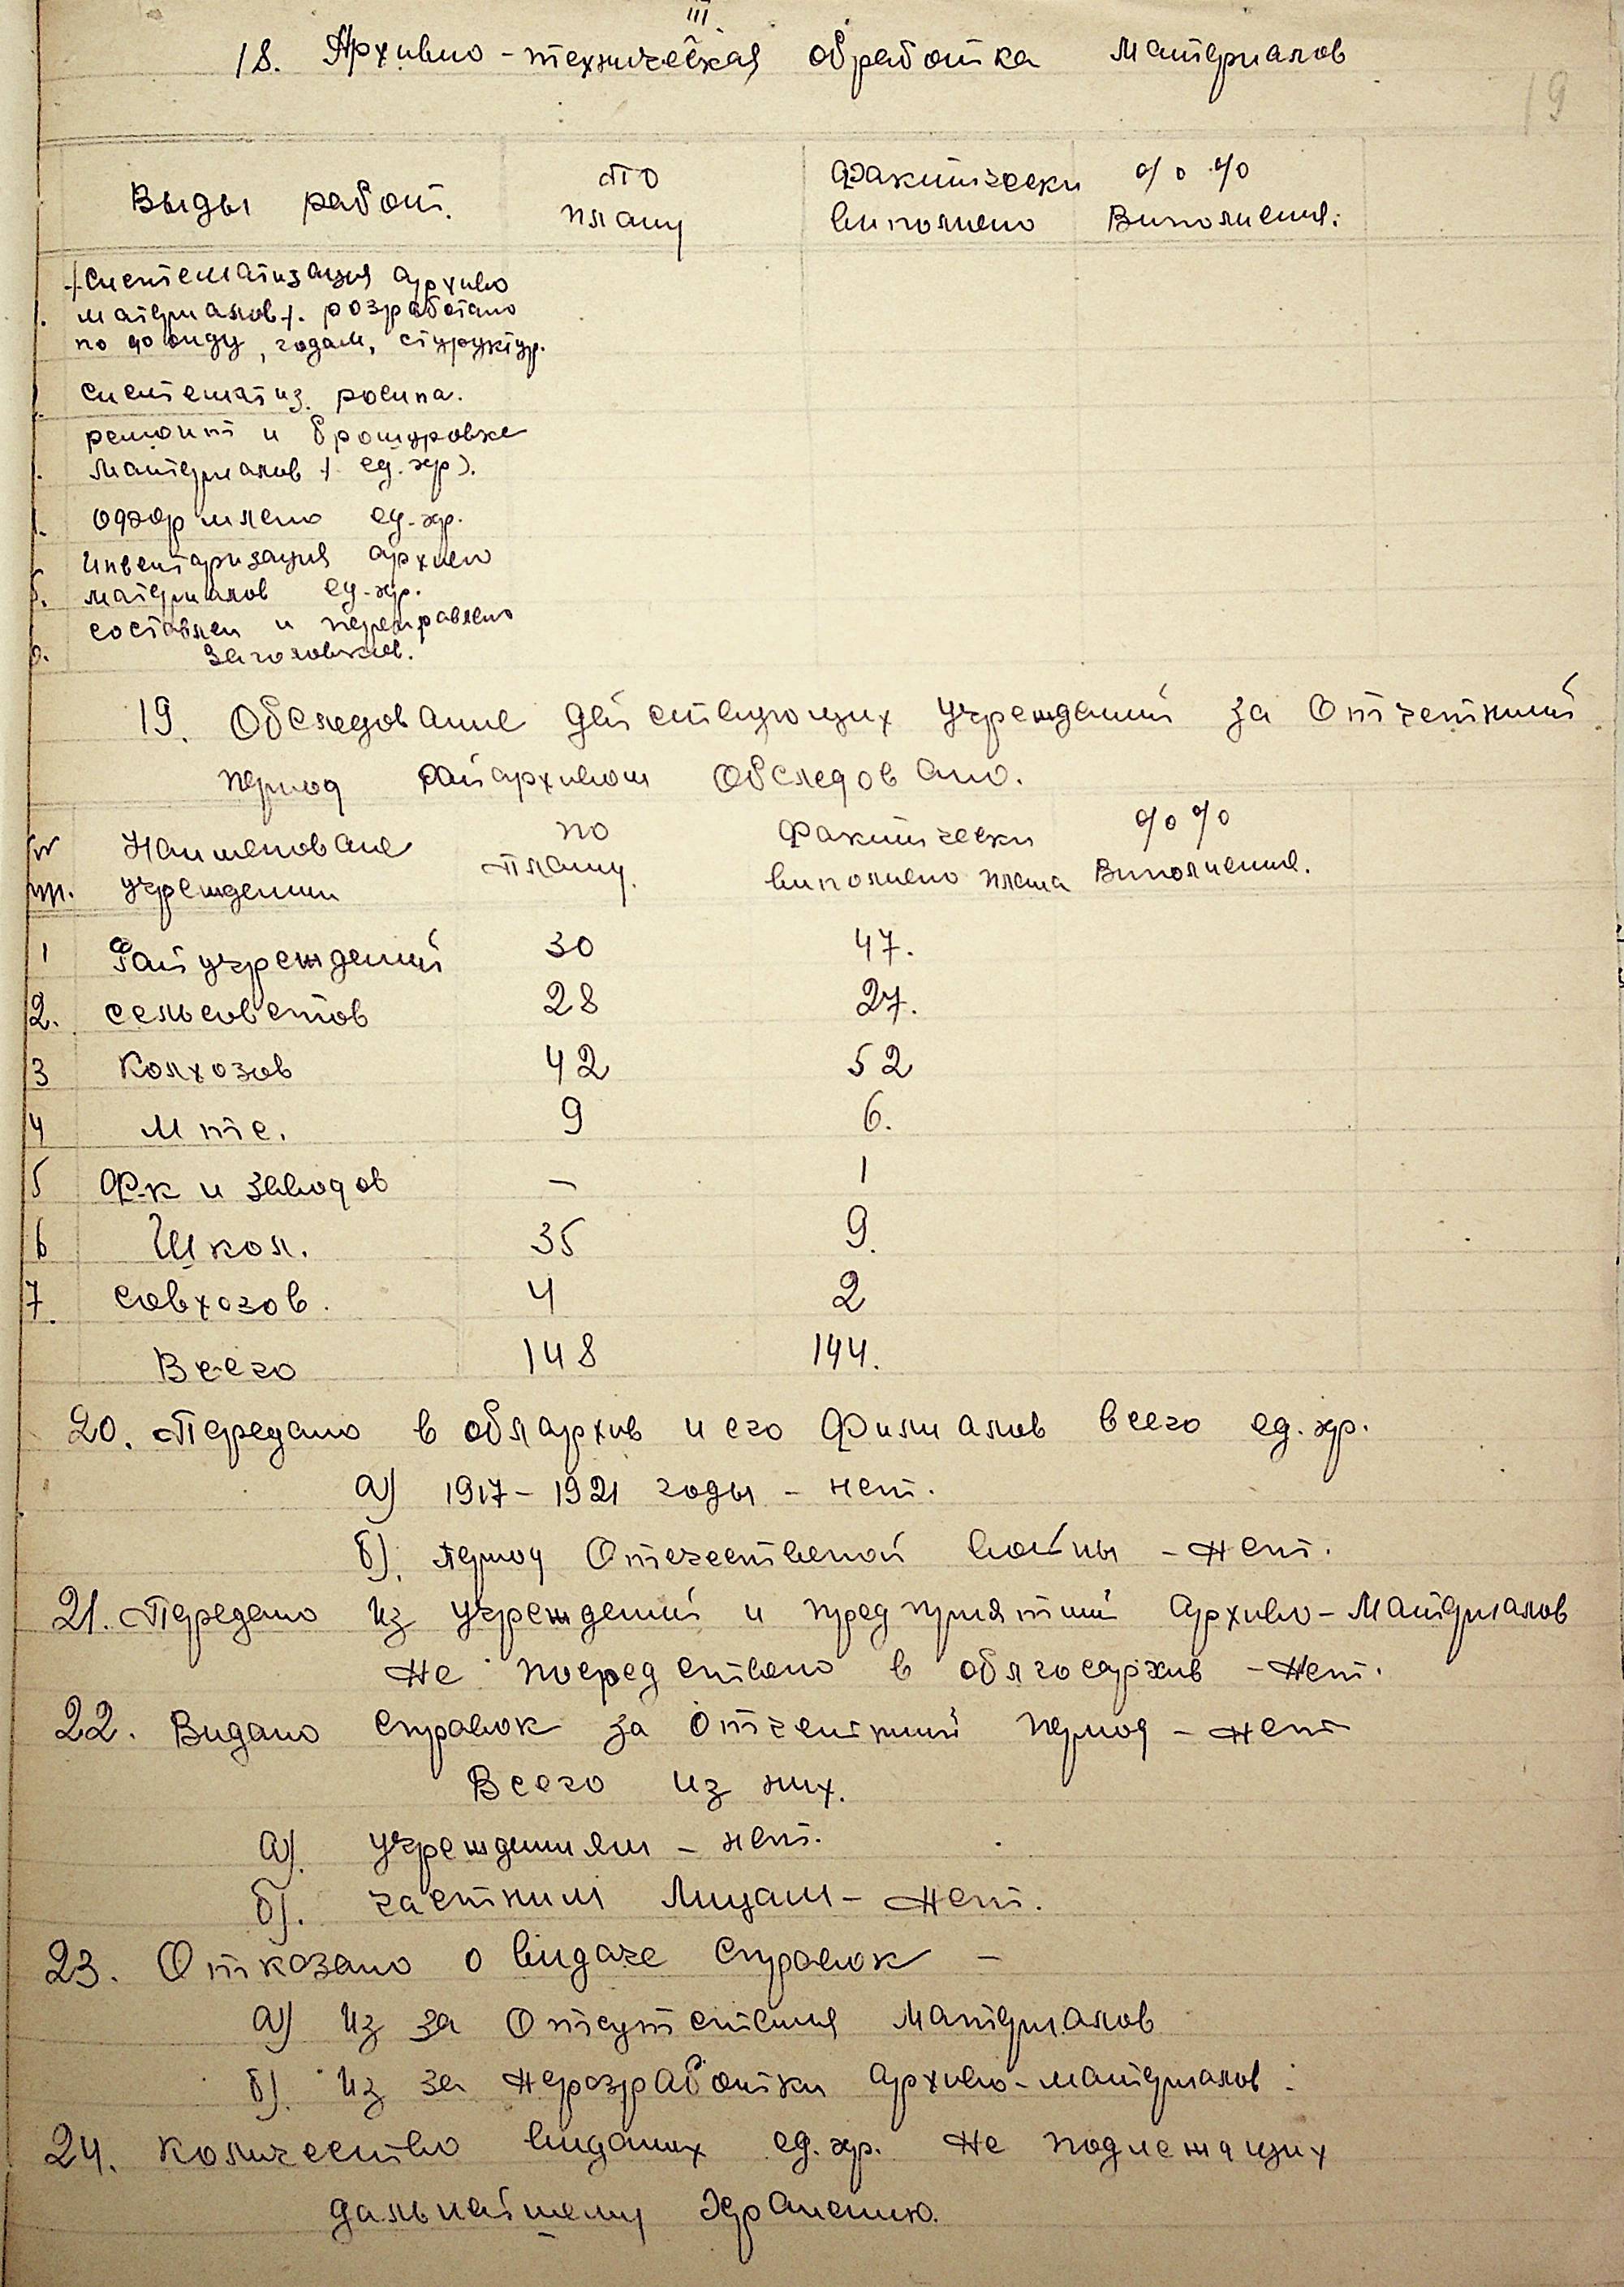 III.
18. Архивно-техническая обработка материалов
19
Выды работ. По плану Фактически выполнено % % Выполнения.
+систематизация архивно
1. материалов+. розработано
по фонду, годам, структур.
2. систематиз. росипа.
ремонт и брошуровке
3. материалов + ед. хр).
4. оформлено ед. хр.
инвентаризация архивно
5. материалов ед. хр.
составлен и переправлено
6. заголовков.
19. Обследование действующих учреждений за Отчетний
период Райархивом Обследовано.
№ Наименование по Фактически % %
пп. учреждении плану. выполнено плана Выполнения.
1 Райучреждений 30 47.
2. сельсоветов 28 27.
3 Колхозов 42 52
4 Мтс. 9 6.
5 Ф-к и заводов – 1
6 Школ. 35 9.
7. совхозов. 4 2
Всего 148 144.
20. Передано в облархив и его Филиалов всего ед. хр.
а) 1917-1921 годы - нет.
б). период Отечественой войны - нет.
21. Передано Из учреждений и предприятий Архивно-Материалов
Не посредствено в облгосархив - Нет.
22. Видано справок за Отчетний период - нет
Всего из них.
а). учреждениям - нет.
б). частним Лицам - Нет.
23. Отказано о видаче справок -
а) Из за Отсутствия Материалов
б). Из за неразработки Архивно-материалов:
24. количество виданих ед. хр. Не подлежащих
дальнейшему Хранению.